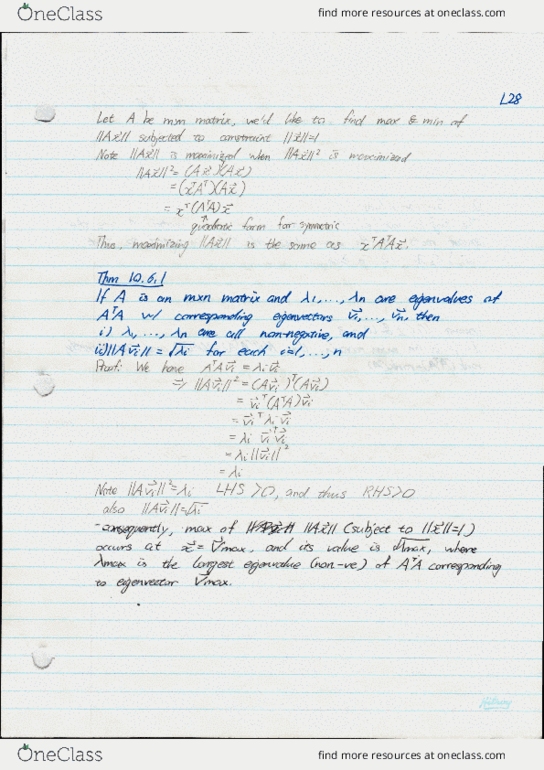 OneClass
find more resources at oneclass.com
L28
Let A be mxn matrix, we'd like to find max & min of
||Ax⃗|| subjected to constraint ||x⃗||=1
Note ||Ax⃗|| is maximized when ||Ax⃗||² is maximized
||Ax⃗||² = (Ax⃗)ᵀ(Ax⃗)
= (x⃗ᵀAᵀ)(Ax⃗)
= x⃗ᵀ(AᵀA)x⃗
quadratic form for symmetric
Thus, maximizing ||Ax⃗|| is the same as x⃗ᵀAᵀAx⃗.
Thm 10.6.1
If A is an mxn matrix and λ₁,..., λn are eigenvalues of
AᵀA w/ corresponding eigenvectors v⃗₁,..., v⃗n, then
i) λ₁,..., λn are all non-negative, and
ii) ||Av⃗ᵢ|| = √λᵢ for each i=1,...,n
Proof: We have AᵀAv⃗ᵢ = λᵢv⃗ᵢ
⇒ ||Av⃗ᵢ||² = (Av⃗ᵢ)ᵀ(Av⃗ᵢ)
= v⃗ᵢᵀ(AᵀA)v⃗ᵢ
= v⃗ᵢᵀλᵢv⃗ᵢ
= λᵢ v⃗ᵢᵀv⃗ᵢ
= λᵢ||v⃗ᵢ||²
= λᵢ
Note ||Av⃗ᵢ||²=λᵢ LHS >0, and thus RHS>0
also ||Av⃗ᵢ||=√λᵢ
-consequently, max of ||Ax⃗|| (subject to ||x⃗||=1)
occurs at x⃗ = v⃗max, and its value is √λmax, where
λmax is the largest eigenvalue (non-ve) of AᵀA corresponding
to eigenvector v⃗max.
OneClass
find more resources at oneclass.com